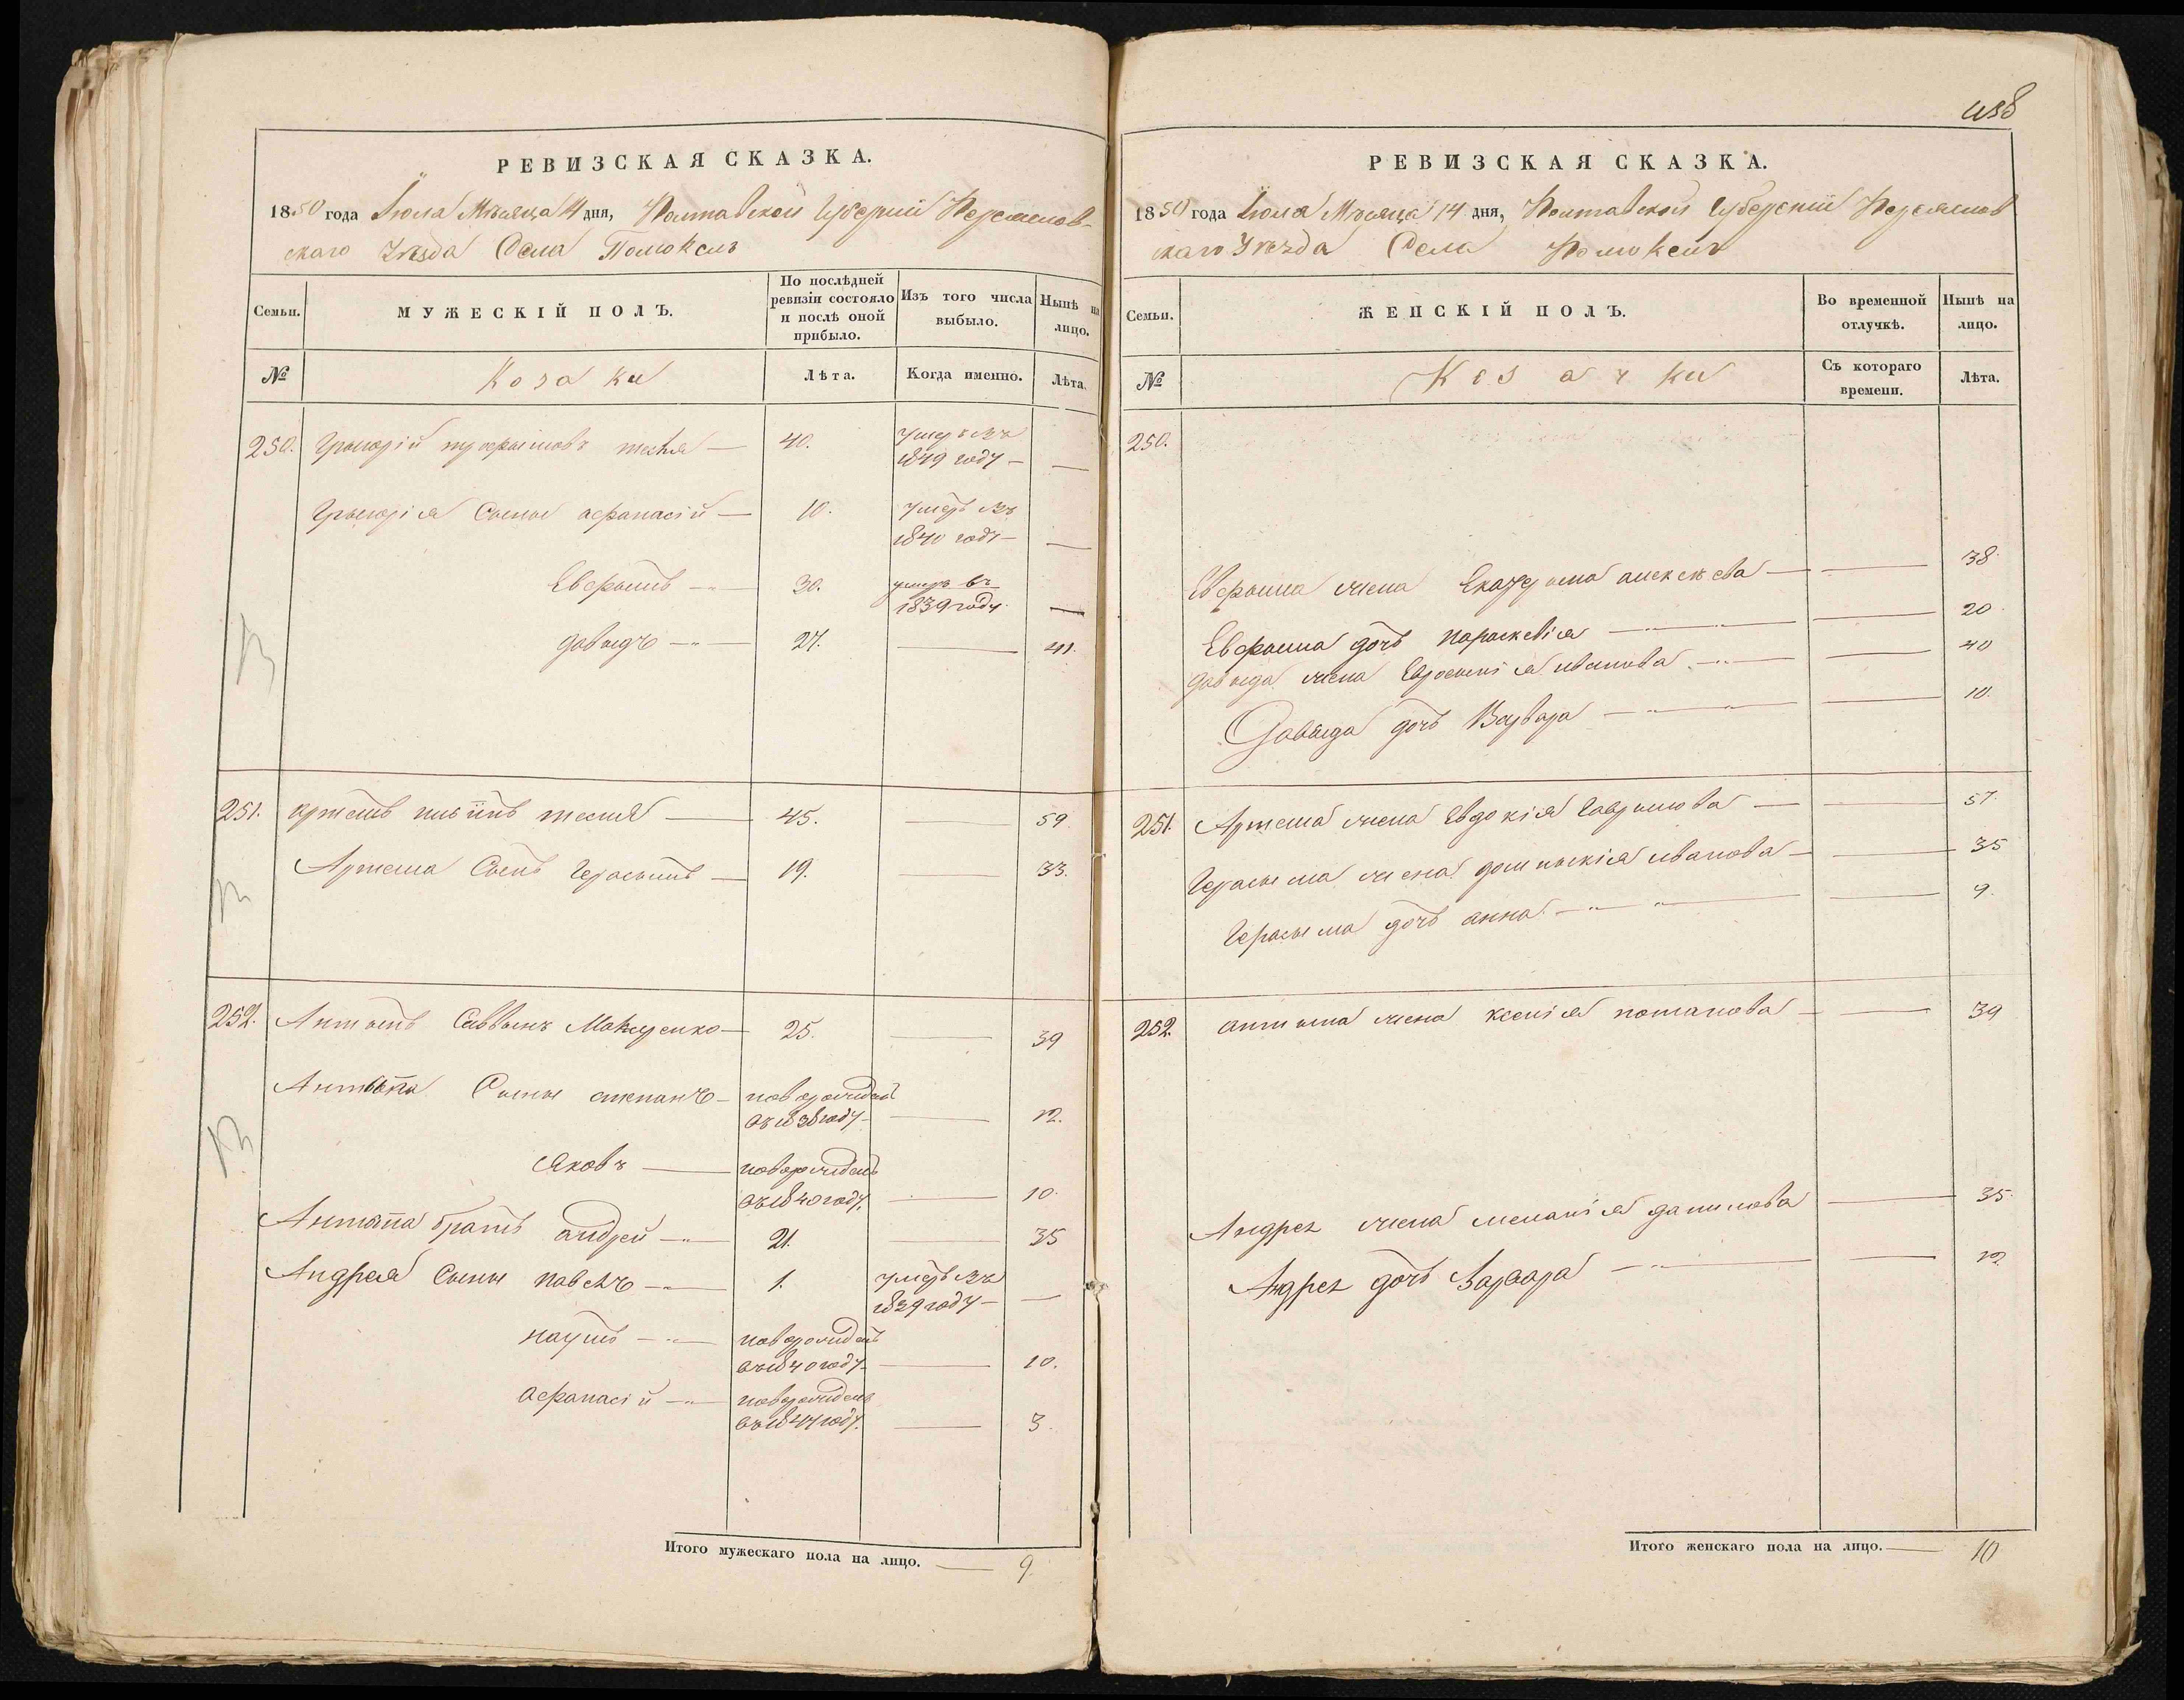 РЕВИЗСКАЯ СКАЗКА.
1850 года Іюля Мѣсяца 14 дня, Полтавской Губерніи Переяслов-
скаго Уѣзда Села Помоклъ
Семьи.
МУЖЕСКІЙ ПОЛЪ.
По послѣдней ревизіи состояло и послѣ оной прибыло.
Изъ того числа выбыло.
Нынѣ на лицо.
№
Козаки
Лѣта.
Когда именно.
Лѣта.
250. Грыгорій тесля — 40. умеръ въ 1849 году — —
Грыгорія Сыны афанасій — 10. умеръ въ 1840 году — —
Ефрымъ — 30. умеръ въ 1839 году. —
давыдъ — 27. — 41.
251. артемъ тесля — 45. — 59.
Артема Сынъ Герасымъ — 19. — 33.
252. Антыпъ Саввынъ — 25. — 39
Антыпа Сыны степанъ — новорожденъ въ 1838 году — — 12.
яковъ — новорожденъ въ 1840 году. — 10.
Антыпа братъ андрей — 21. — 35
Андрея Сыны павелъ — 1. умеръ въ 1839 году — —
наумъ — новорожденъ въ 1840 году — — 10.
афанасій — новорожденъ въ 1847 году. — 3.
Итого мужескаго пола на лицо. — 9.
458
РЕВИЗСКАЯ СКАЗКА.
1850 года Іюля Мѣсяца 14 дня, Полтавской Губерніи Переяслов
скаго Уѣзда Села Помоклъ
Семьи.
ЖЕНСКІЙ ПОЛЪ.
Во временной отлучкѣ.
Нынѣ на лицо.
№
Козачки
Съ котораго времени.
Лѣта.
250.
Ефрыма жена Екатерына алексѣева — — 38.
Ефрыма дочь параскевія — — 20.
давыда жена Ефросынія иванова — — 40
Давыда дочь Варвара — — 10.
251. Артема жена Евдокія Гаврылова — — 57.
Герасыма жена домникія иванова — — 35
Герасыма дочь анна — — 9.
252. антыпа жена ксенія потапова — — 39
Андрея жена меланія данилова — 35.
Андрея дочь Варвара — — 12.
Итого женскаго пола на лицо. — 10